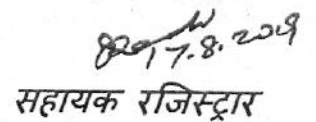 17.8.2019
सहायक रजिस्ट्रार